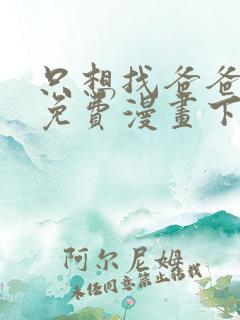 只想找爸爸
免費漫畫下
阿尔尼姆
未经同意禁止转载